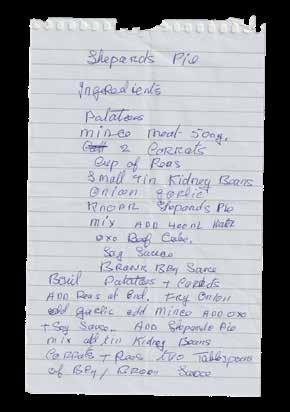 Shepards Pie
Ingredients
Patatoes
mince meat 500g.
2 CORRATS
Cup of Peas
Small tin Kidney Beans
Onion garlic
KNORR Shepards Pie
mix ADD 400ml Water
OXO Beef Cube.
Soy Sauce
Brown BBQ Sauce
Boil Patatoes + CORRATS
ADD Peas at End. Fry Onion
add garlic add Mince ADD OXO
+ Soy Sauce. ADD Shepards Pie
mix add tin Kidney Beans
CORRATS + Peas two Tablespoons
of BBQ/Brown Sauce